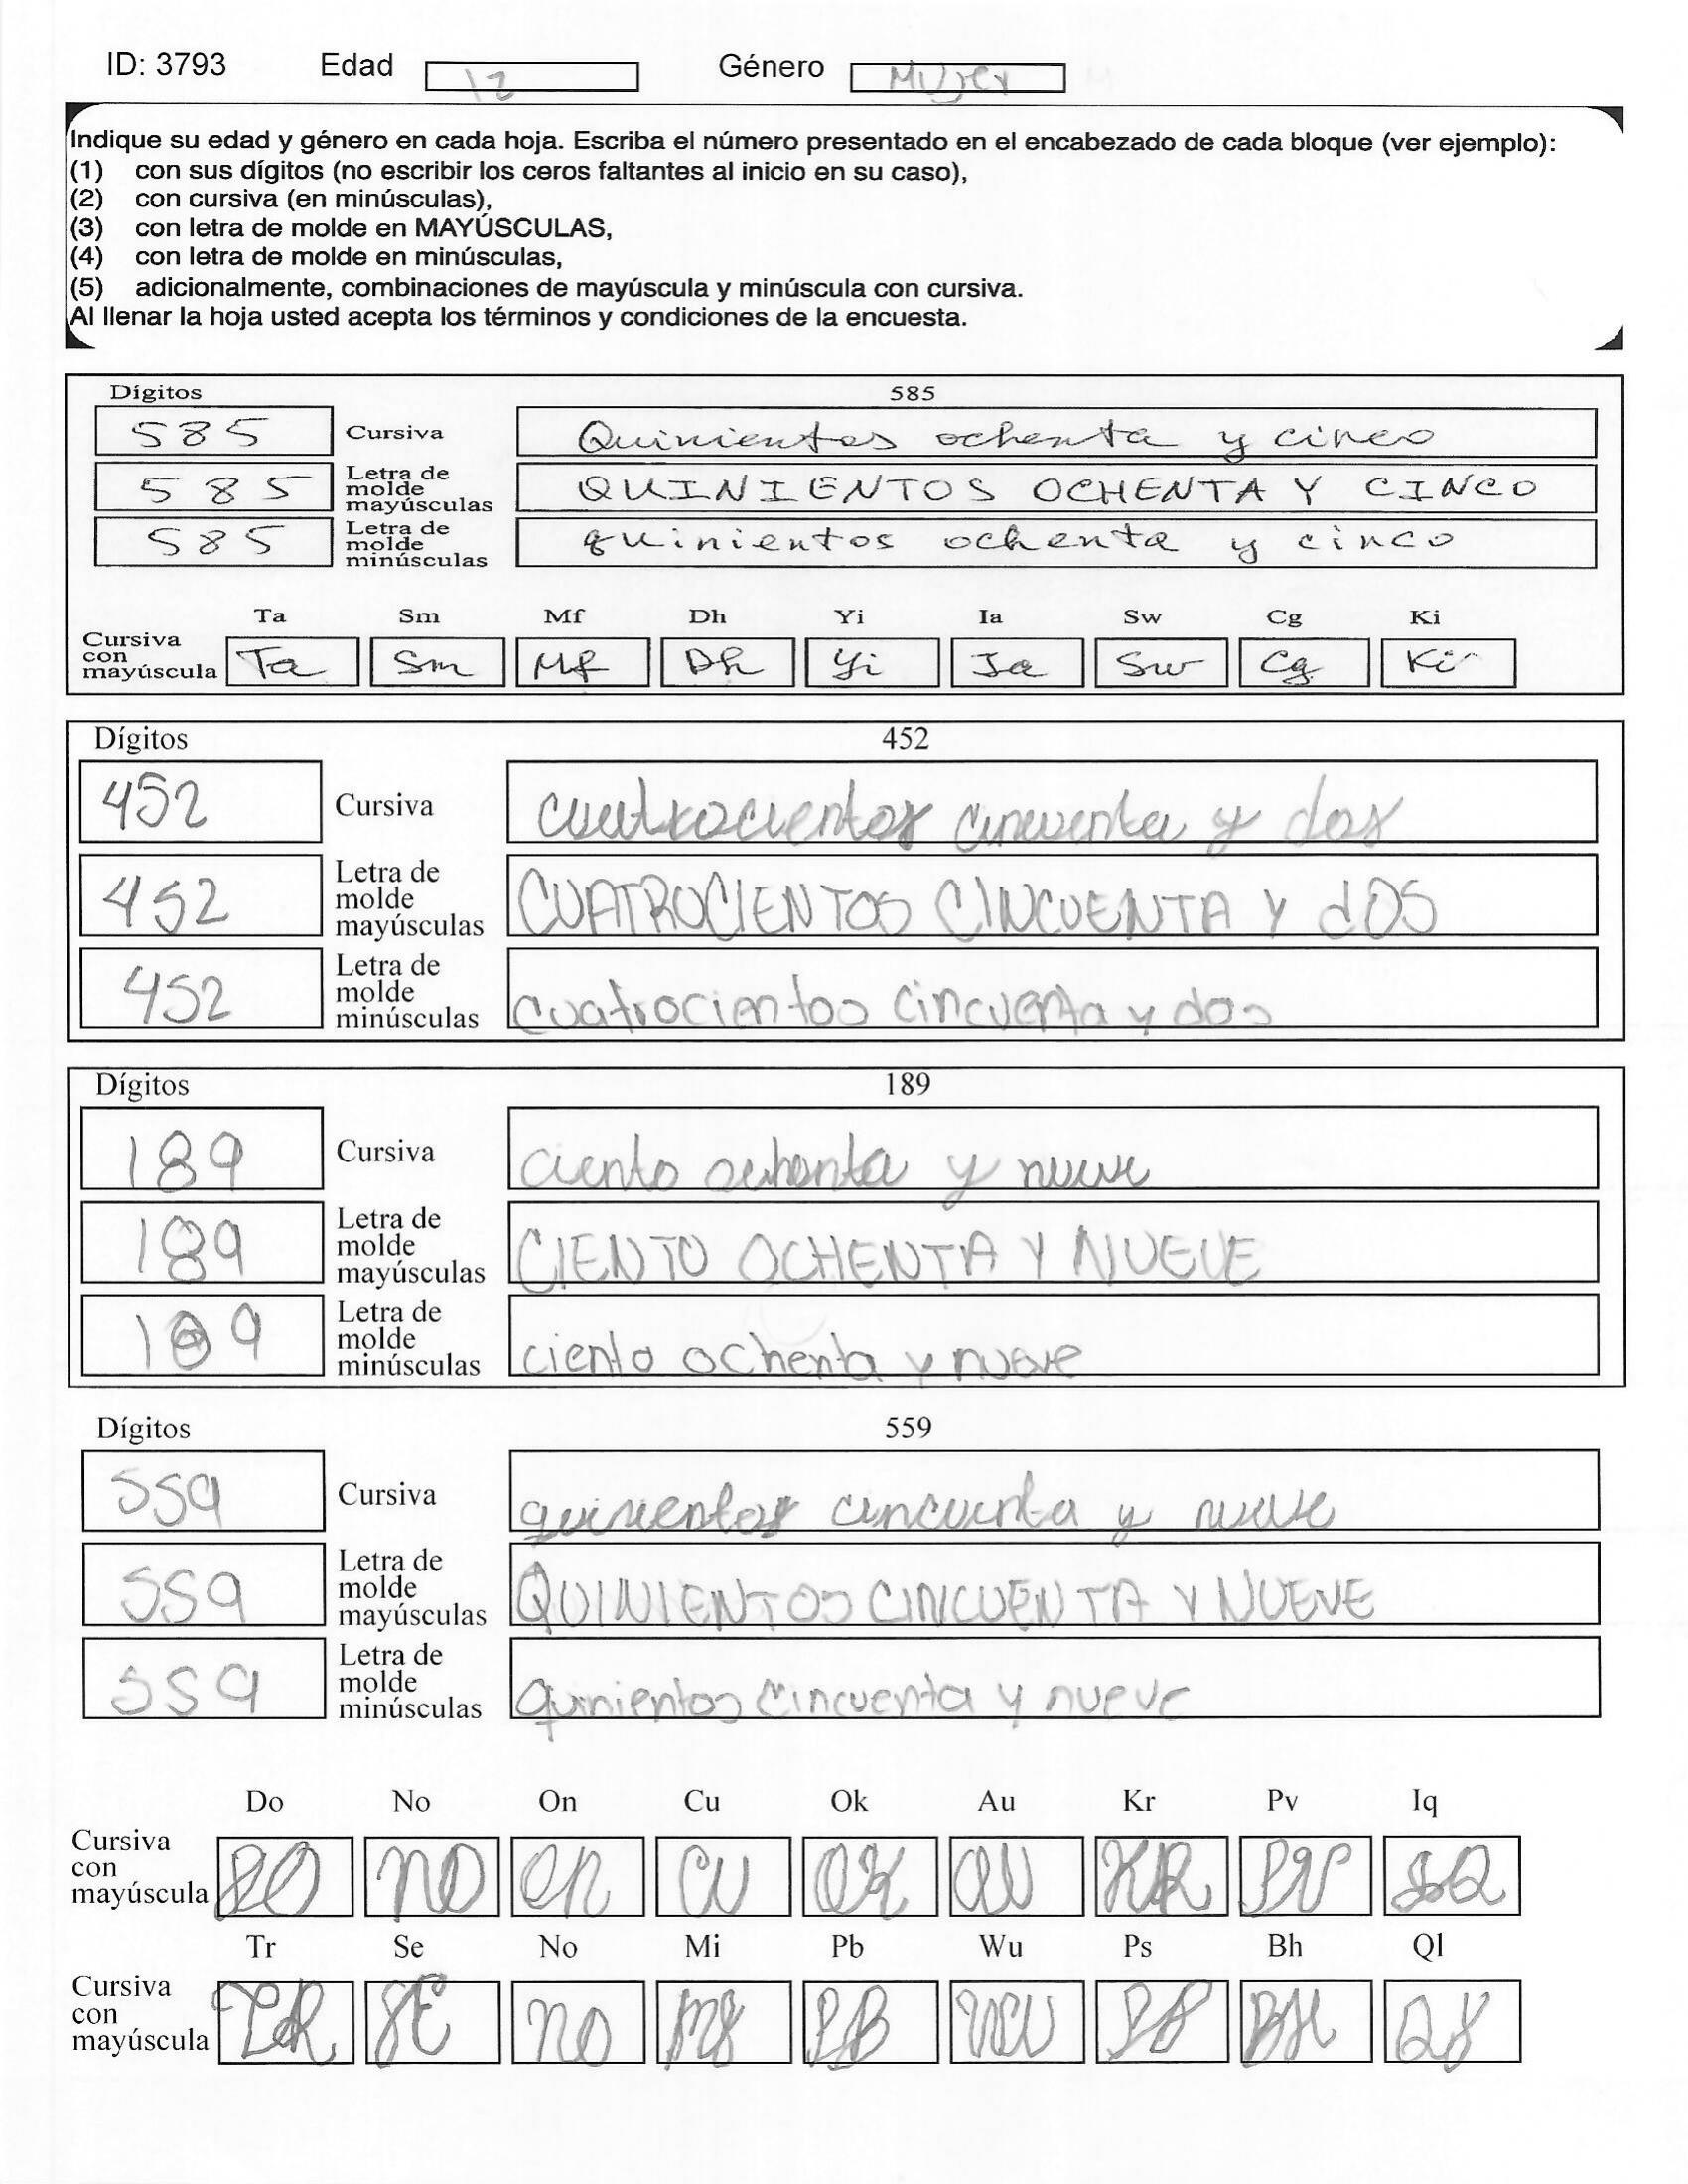 ID: 3793 Edad 12 Género Mujer
Indique su edad y género en cada hoja. Escriba el número presentado en el encabezado de cada bloque (ver ejemplo):
(1) con sus dígitos (no escribir los ceros faltantes al inicio en su caso),
(2) con cursiva (en minúsculas),
(3) con letra de molde en MAYÚSCULAS,
(4) con letra de molde en minúsculas,
(5) adicionalmente, combinaciones de mayúscula y minúscula con cursiva.
Al llenar la hoja usted acepta los términos y condiciones de la encuesta.
Dígitos 585
585 Cursiva Quinientos ochenta y cinco
585 Letra de molde mayúsculas QUINIENTOS OCHENTA Y CINCO
585 Letra de molde minúsculas quinientos ochenta y cinco
Ta Sm Mf Dh Yi Ia Sw Cg Ki
Cursiva con mayúscula Ta Sm Mf Dh Yi Ia Sw Cg Ki
Dígitos 452
452 Cursiva cuatrocientos cincuenta y dos
452 Letra de molde mayúsculas CUATROCIENTOS CINCUENTA Y dOS
452 Letra de molde minúsculas cuatrocientos cincuenta y dos
Dígitos 189
189 Cursiva ciento ochenta y nueve
189 Letra de molde mayúsculas CIENTO OCHENTA Y NUEVE
189 Letra de molde minúsculas ciento ochenta y nueve
Dígitos 559
559 Cursiva quinientos cincuenta y nueve
559 Letra de molde mayúsculas QUINIENTOS CINCUENTA Y NUEVE
559 Letra de molde minúsculas quinientos cincuenta y nueve
Do No On Cu Ok Au Kr Pv Iq
Cursiva con mayúscula DO NO ON CU OK AU KR PV IQ
Tr Se No Mi Pb Wu Ps Bh Ql
Cursiva con mayúscula TR SE NO MI PB WU PS BH QL